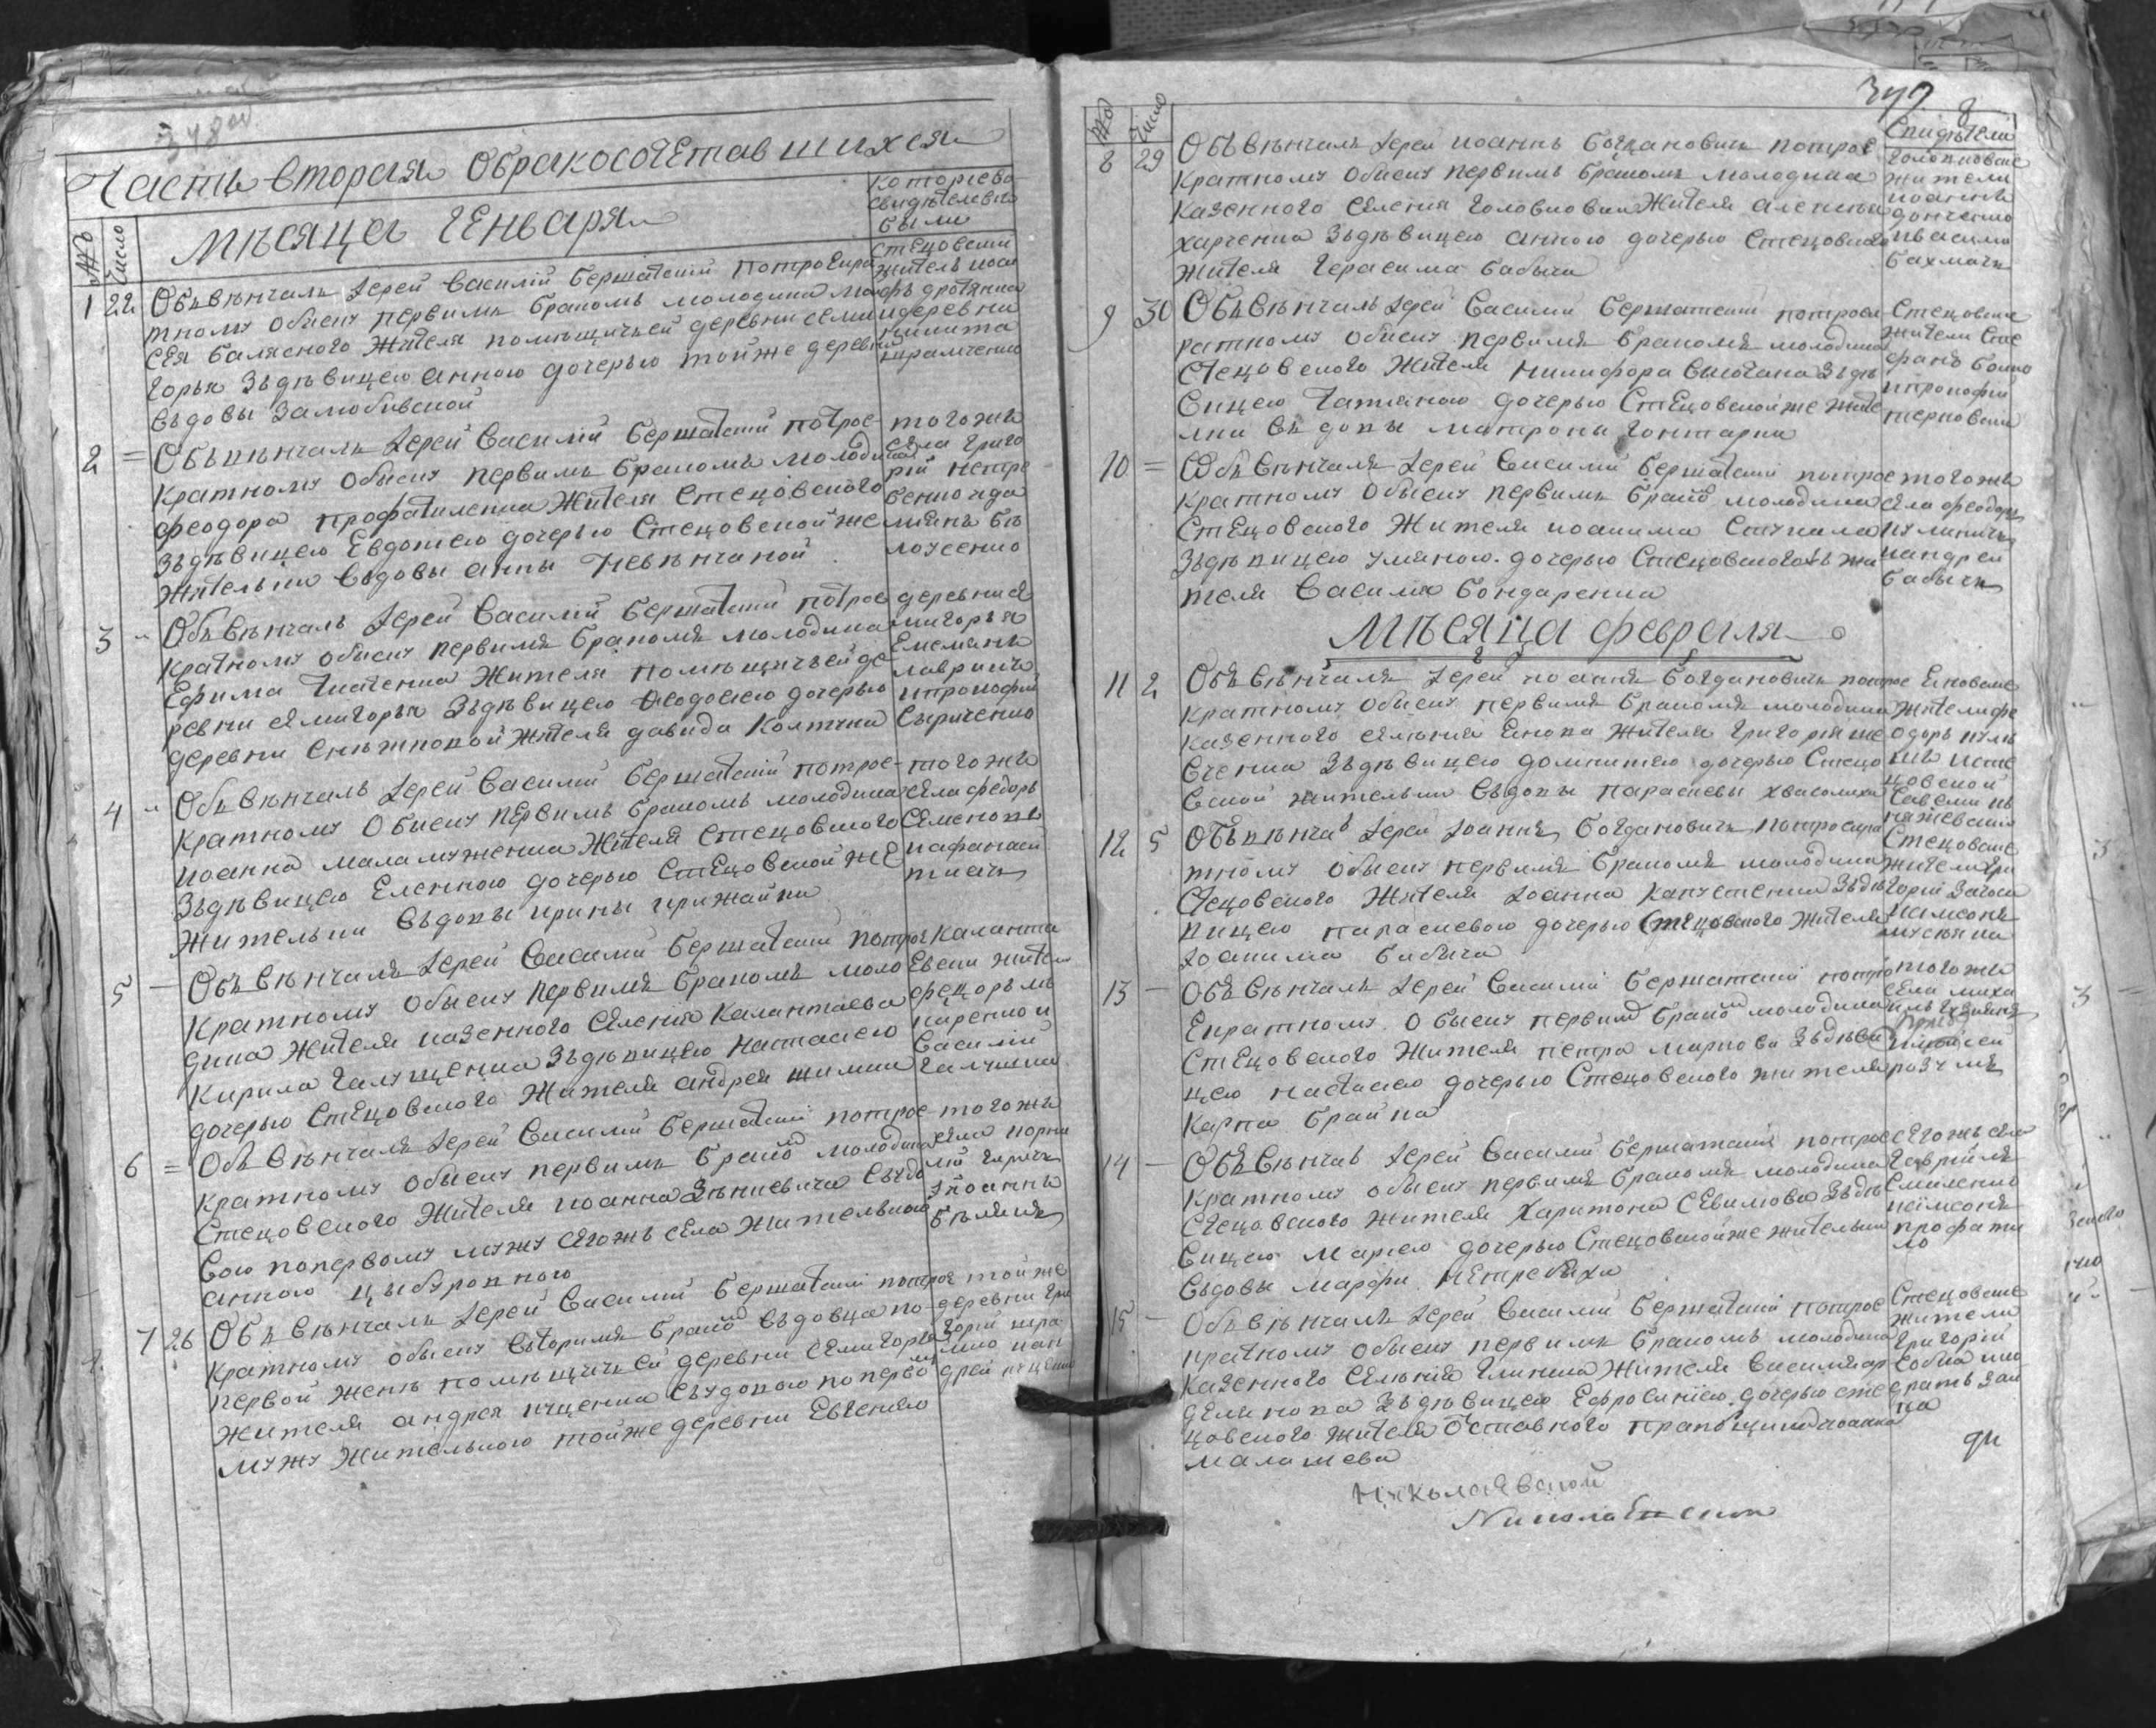 348 об
Часть вторая Обракосочетавшихся
Месяца Генваря
которіе во
свидѣтелств
были
№ Число
1 22 Объвѣнчалъ Іерей Василій Бершатскій потроекра
тному обиску первимъ бракомъ молодика мои
сея Балясного Жителя помѣщичьей деревни семи
горья Зъдѣвицею анною дочерью тойже деревни
въдовы Залюбивской
Стецовский
житель иоси
фъ дротянка
идеревни
никита
карамченко
2 = Объвѣнчалъ Іерей Василій Бершатскій потрое
кратному обиску первимъ бракомъ молодика
феодора профатиленка Жителя Стецовского
Зъдѣвицею Евдокиею дочерью Стецовскойже
жительки въдовы анны Невѣнчаной
тогожъ
села Григо
рій нетре
бенко ида
міянъ бѣ
лоусенко
3 " Объвѣнчалъ Іерей Василій Бершатскій потрое
кратному обиску первимъ бракомъ молодика
Ефима Ткаченка Жителя помѣщичьей де
ревни Семигорья Зъдѣвицею Феодосиею дочерью
деревни Снѣжковой Жителя давида Колтука
деревни се
мигорья
Емелянъ
лавринъ
ипрокофий
Сыриченко
4 " Объвѣнчалъ Іерей Василій Бершатскій потрое
кратному Обиску первимъ бракомъ молодика
иоанна маламуженка Жителя стецовского
Зъдѣвицею Еленною дочерью Стецовской же
жительки въдовы ирины крижайки
тогожъ
села федоръ
Семеновъ
иафанаси
ткачъ
5 — Объвѣнчалъ Іерей Василій Бершатскій потрое
кратному обиску первимъ бракомъ моло
дика Жителя казенного Селенія Калантаева
Кирила Галущенка Зъдѣвицею Настасиею
дочерью Стецовского Жителя андрея шимки
каланта
евски жители
федоръ ма
каренко и
Василій
Галушка
6 = Объвѣнчалъ Іерей Василій Бершатскій потрое
кратному обиску первимъ бракомъ молодика
Стецовского Жителя иоанна Зѣнкевича Съвдо
вою поперному мужу сегожъ села Жителькою
анною цыбуровною
тогожъ
села корни
лій Кирічъ
иоаннъ
бѣлякъ
7 26 Объвѣнчалъ Іерей Василій Бершатскій потрое
кратному обиску въторимъ бракомъ въдовца по
первой женѣ помѣщичьей деревни семигорья
жителя андрея куценка съвдовою поперво
мужу жителькою тойже деревни Евгениею
тойже
деревни Гри
горій кара
мко иан
дрей куценко
349
8
№ Число
Свидѣтели
8 29 Объвѣнчалъ Іерей иоаннъ богдановичъ потрое
кратному обиску первимъ бракомъ молодика
казенного селенія Головковки Жителя алексѣя
харченка Зъдѣвицею анною дочерью Стецовского
жителя Герасима бабыча
Головковские
жители
иоаннъ
донченко
ивасили
бахмачъ
9 30 Объвѣнчалъ Іерей Василий бершатский потроек
ратному обиску первимъ бракомъ молодика
Стецовского Жителя никифора Висоцана Зъдѣ
вицею татяною дочерью Стецовскойже жите
лки въдовы матроны Гонтарки
Стецовские
жители Сте
фанъ бойко
ипрокофий
терновский
10 = Объвѣнчалъ Іерей Василий бершатский потрое
кратному обиску первимъ бракомъ молодика
Стецовского Жителя иоакима Ступака
Зъдѣвицею уляною дочерью Стецовского жи
теля Василия бондаренка
тогожъ
села феодоръ
кулиничъ
иандрей
бабычъ
Месяца февраля
11 2 Объвѣнчалъ Іерей иоаннъ богдановичъ потрое
кратному обиску первимъ бракомъ молодика
казенного селенія Янова Жителя Григорія ше
вченка Зъдѣвицею домникиею дочерью Стецо
вской жительки въдовы парасковы хвасолихи
Яновские
жители фе
одоръ куль
12 5 Объвѣнчавъ Іерей Іоаннъ Богдановичъ потроекра
тному обиску первимъ бракомъ молодика
Стецовского Жителя Іоанна капустенка Зъдѣ
вицею параскевою дочерью Стецовского Жителя
Іоакима бабыча
Стецовские
жители Гри
горій
исимеонъ
мусѣнка
13 — Объвѣнчалъ Іерей Василій бершатскій потро
екратному Обиску первимъ бракомъ молодика
Стецовского Жителя петра маркова Зъдѣви
цею настасиею дочерью Стецовского жителя
карпа брайка
тогожъ
села миха
илъ
разумъ
14 — Объвѣнчавъ Іерей Василий бершатский потрое
кратному обиску первимъ бракомъ молодика
Стецовского жителя Харитона Євимова Зъдѣ
вицею мариею дочерью Стецовскойже жительки
въдовы марфи Нетребихи
сегожъ села
Гавріилъ
Смиленко
исимеонъ
профати
ло
15 — Объвѣнчалъ Іерей Василий бершатский потрое
кратному обиску первимъ бракомъ молодика
казенного селенія Глинска Жителя Василия ар
Зъдѣвицею Ефросиниею дочерью сте
цовского жителя Оставного прапощика иоанна
малашева
Стецовские
жители
Григорій
собка ико
дратъ Заи
ка